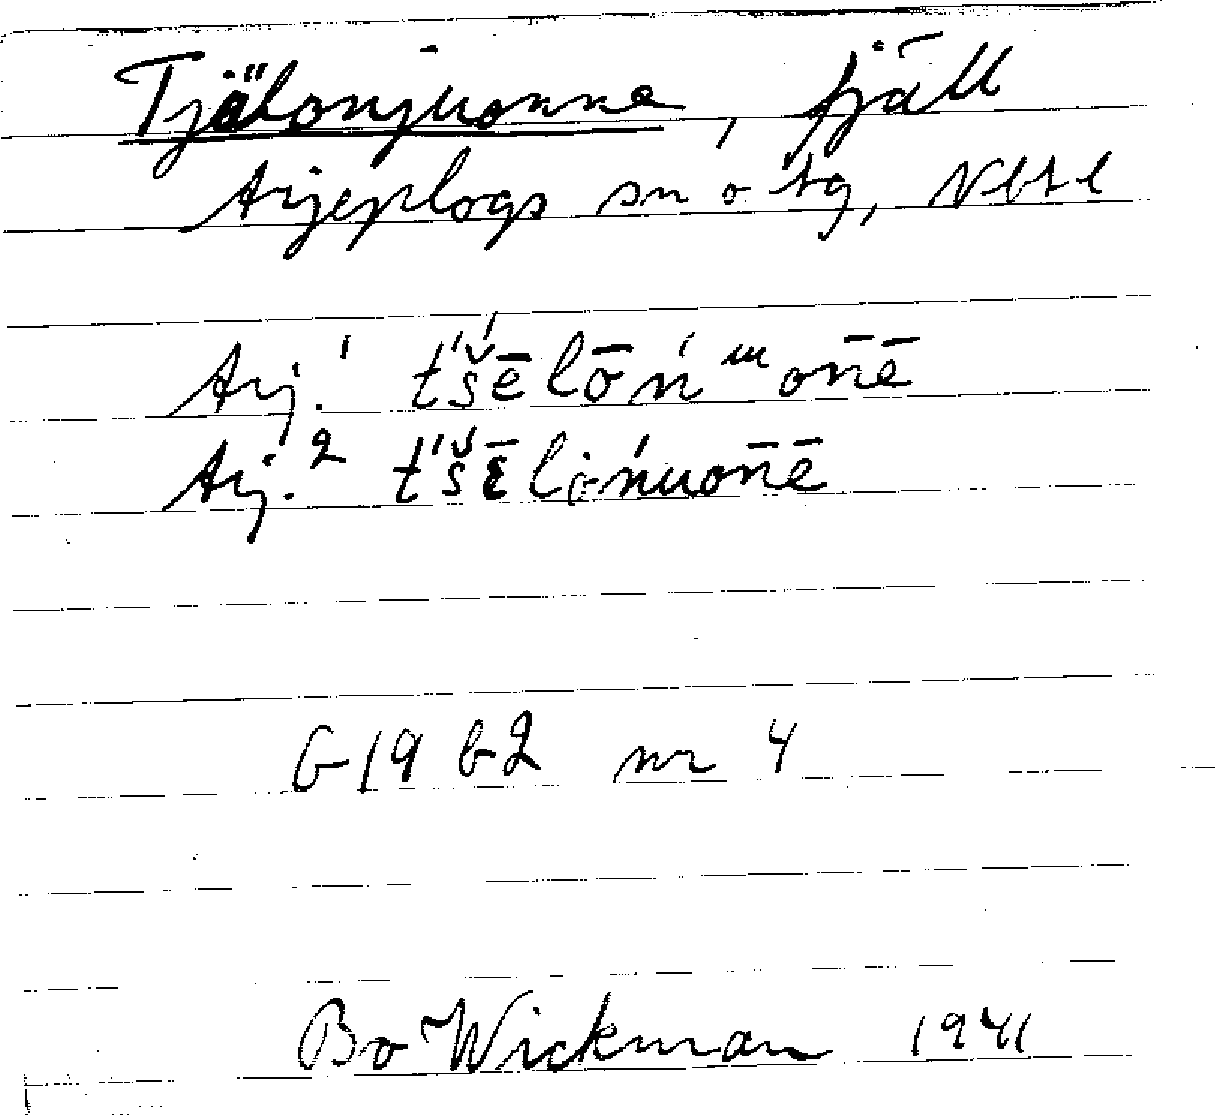 Tjälonjuonne, fjäll
Arjeplogs sn o tg, Nbtl
Arj.¹ t́'š́ēlōń ᵘᵘonēˉ
Arj.² t́'š́ɛ̄lo̜ńuon̄ē
G19 b2 nr 4
Bo Wickman 1941